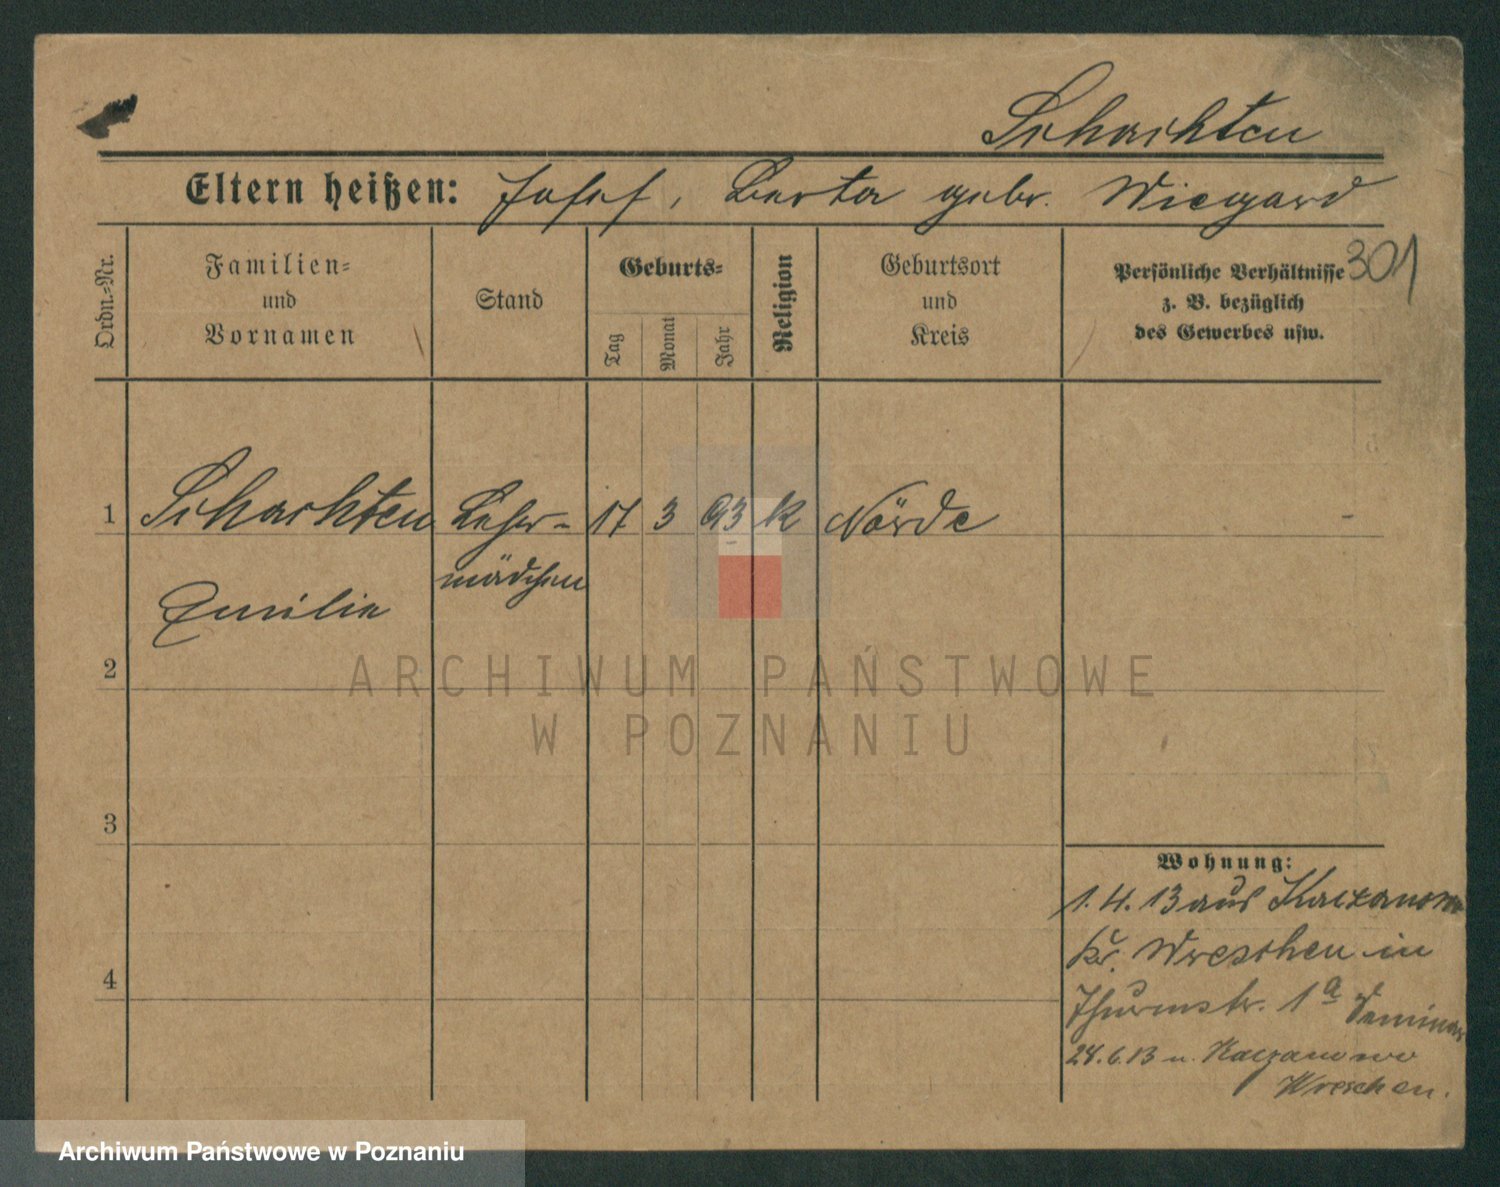 Schachten
Eltern heißen: Josef, Berta gebr. Wiegard
Ordn.-Nr.
Familien-
und
Vornamen
Stand
Geburts-
Tag
Monat
Jahr
Religion
Geburtsort
und
Kreis
Persönliche Verhältnisse
z. B. bezüglich
des Gewerbes usw.
301
1 Schachten Lehr- 17 3 93 k Nörde -
mädchen
Emilie
2
3
4
Wohnung:
1. 4. 13 aus Kaczanowo
Kr. Wreschen in
Thurmstr. 1a Seminar
24.6.13 n. Kaczanowo
Wreschen.
ARCHIWUM PAŃSTWOWE
W POZNANIU
Archiwum Państwowe w Poznaniu